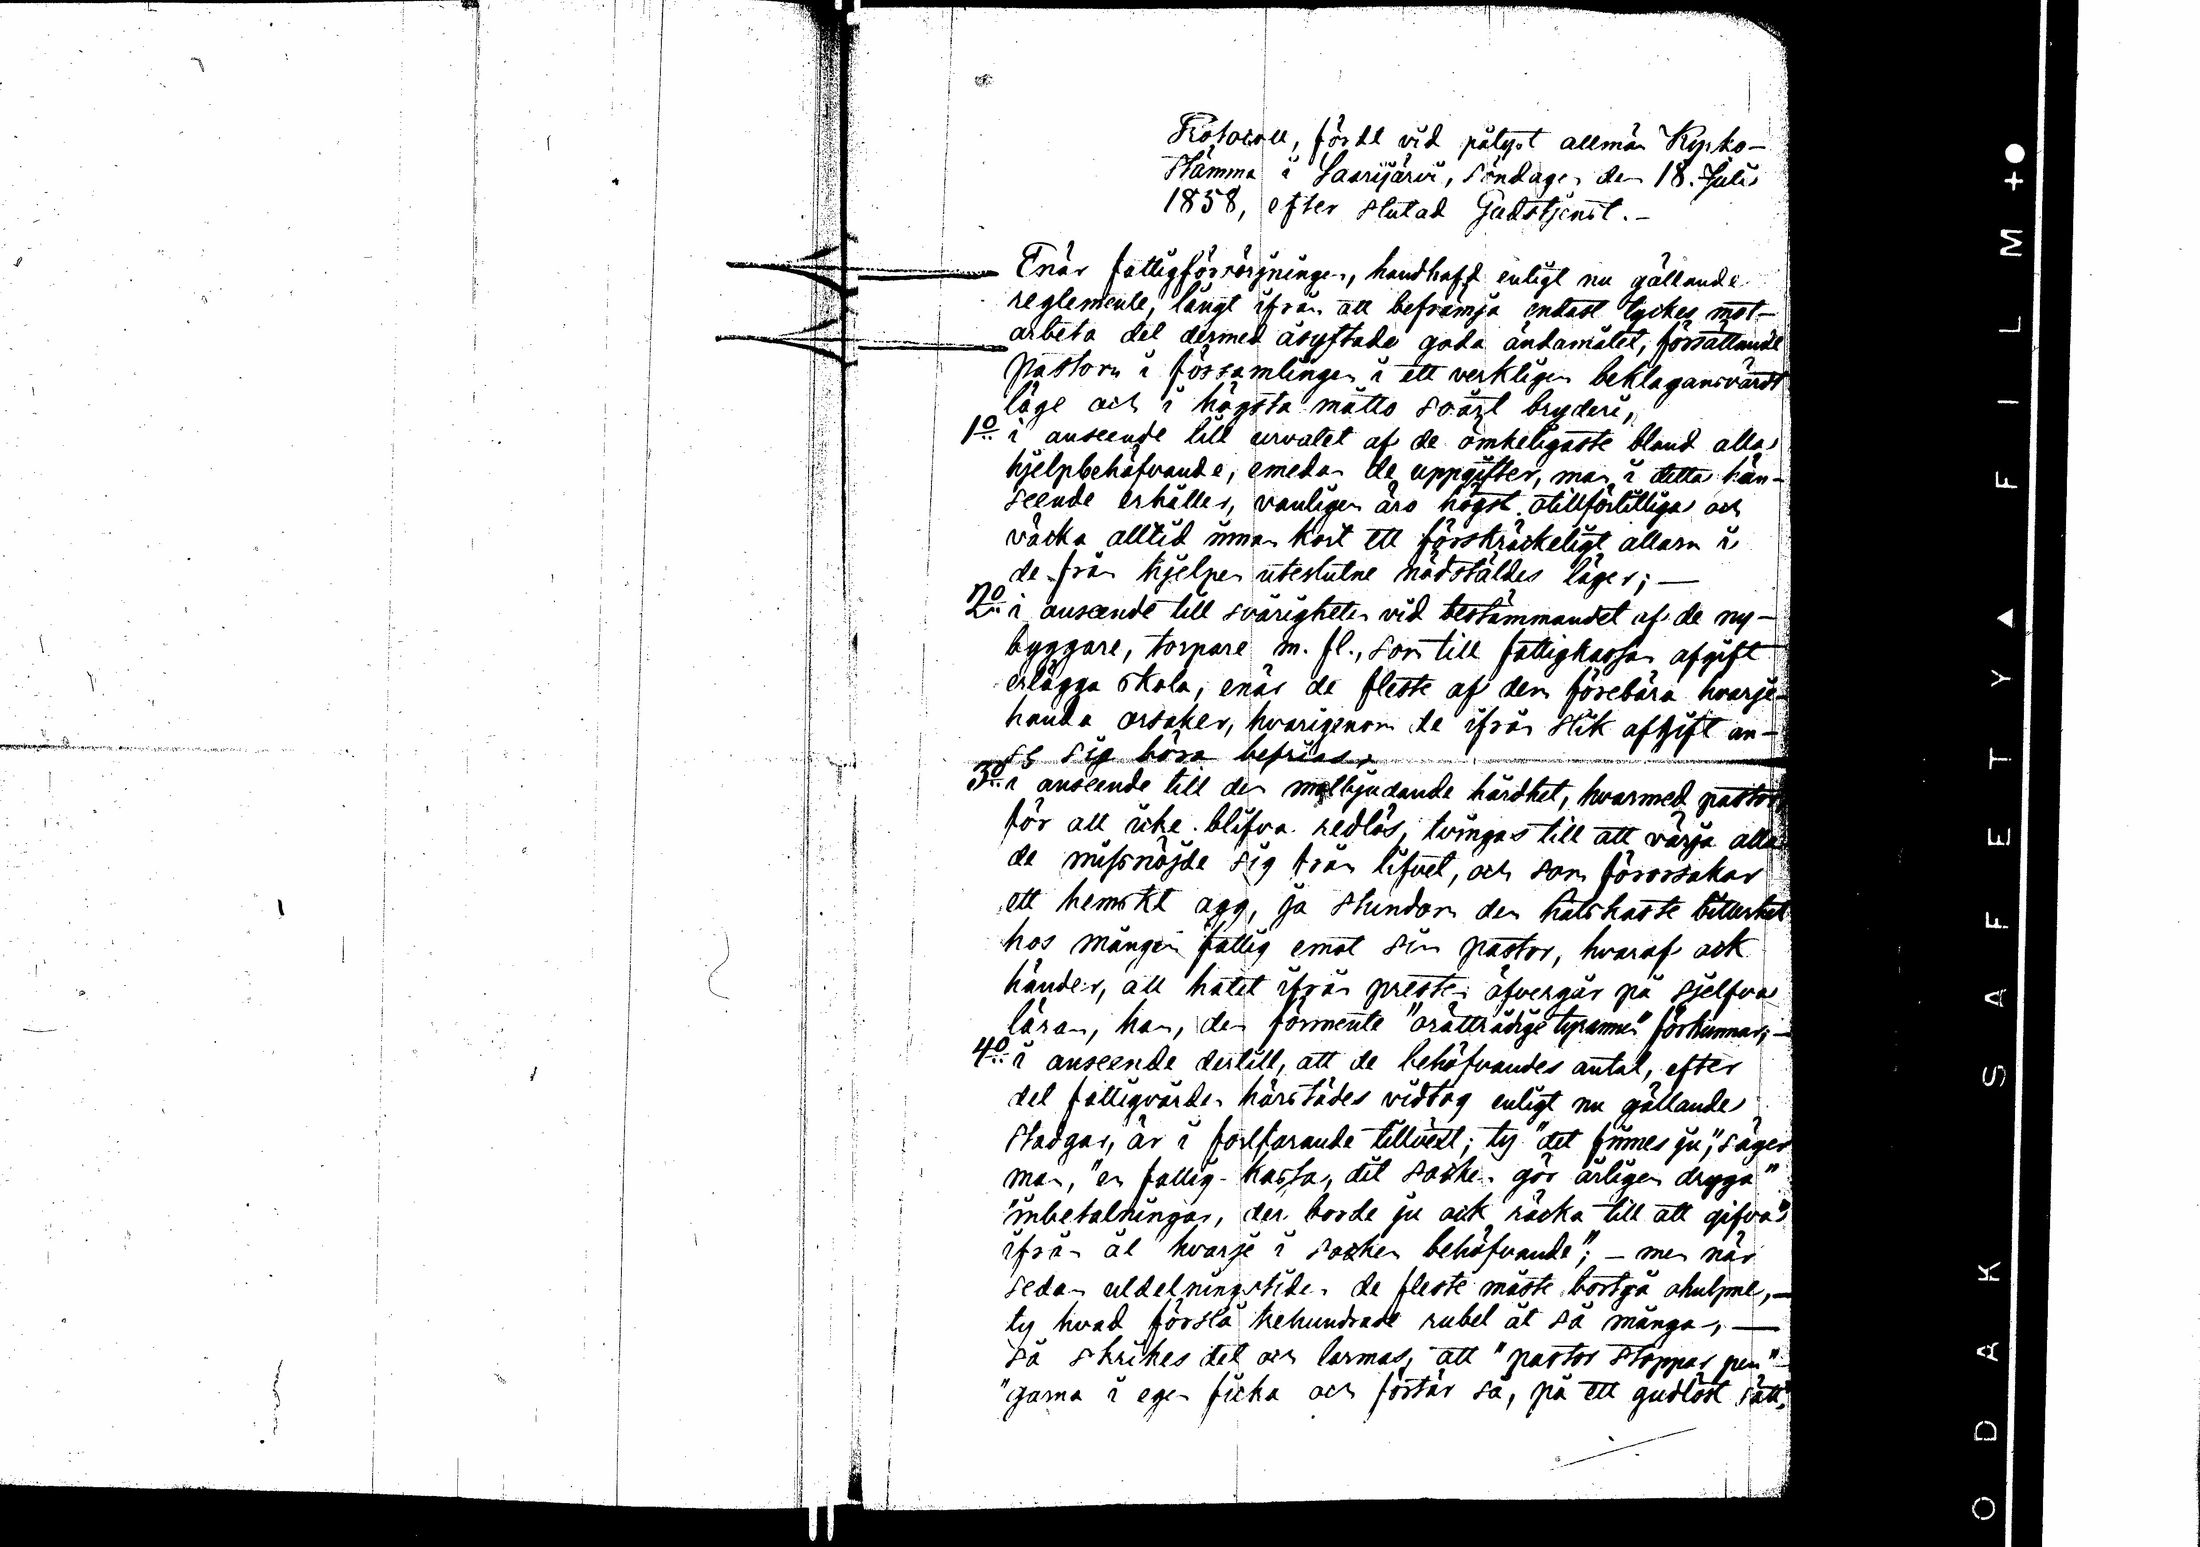 Protocoll, fördt vid pålyst allmän Kyrko-
stämma i Saarijärvi, söndagen den 18. Julii
1858, efter slutad Gudstjenst. -
Enär fattigförsörjningen, handhafd enligt nu gällande
reglemente, långt ifrån att befrämja endast tyckes mot-
arbeta det dermed åsyftade goda ändamålet, försättande
pastorn i församlingen i ett verkligen beklagansvärdt
läge och i högsta måtto svårt bryderi,
1o i anseende till urvalet af de ömkeligaste bland alla
hjelpbehöfvande, emedan de uppgifter, man i detta hän-
seende erhåller, vanligen äro högst otillförlitliga och
väcka alltid innan kort ett förskräckeligt allarm i
de från hjelpen uteslutne nödstäldes läger; -
2o i anseende till svårigheten vid bestämmandet af de ny-
byggare, torpare m. fl., som till fattigkassan afgift
erlägga skola, enär de fleste af dem förebära hvarje-
handa orsaker, hvarigenom de ifrån slik afgift an-
se sig böra befrias,
3o i anseende till den motbjudande hårdhet, hvarmed pastor
för att icke blifva redlös, tvingas till att värja alla
de missnöjde sig från lifvet, och som förorsakar
ett hemskt agg, ja stundom den hätskaste bitterhet
hos mången fattig emot sin pastor, hvaraf ock
händer, att hatet ifrån presten öfvergår på sjelfva
läran, han, den förmente "orättrådige tyrannen" förkunnar; -
4o i anseende dertill, att de behöfvandes antal, efter
det fattigvården härstädes vidtog enligt nu gällande
stadgar, är i fortfarande tillvext; ty "det finnes ju", säger
man, "en fattig-kassa, dit socken gör årligen dryga"
"inbetalningar, den borde ju ock räcka till att gifvas"
ifrån åt hvarje i socken behöfvande"; - men när
sedan utdelningstiden de fleste måste bortgå ohulpne, -
ty hvad förslå trehundrade rubel åt så många, -
så skrikes det och larmas, att "pastor stoppar pen"-
"garna i egen ficka och förstör så, på ett gudlöst sätt,"
KODAK SAFETY FILM